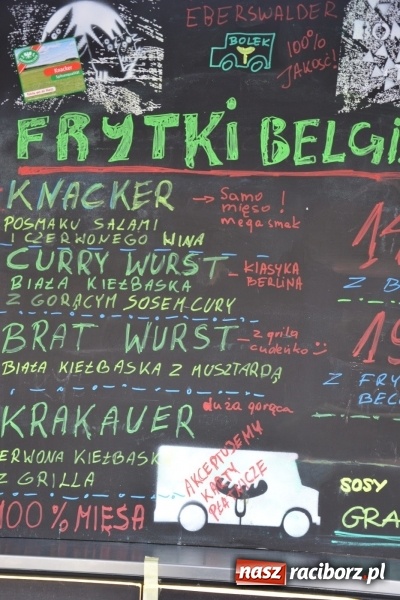 EBERSWALDER
BOLEK
100%
JAKOŚĆ!
Knacker
FRYTKI BELGI
KNACKER → Samo mięso! mega smak
POSMAKU SALAMI
I CZERWONEGO WINA
CURRY WURST - KLASYKA BERLINA
BIAŁA KIEŁBASKA
Z GORĄCYM SOSEM CURY
14
Z B
BRAT WURST - z grila cudeńko
BIAŁA KIEŁBASKA Z MUSZTARDĄ
19
Z FRY
BEL
KRAKAUER duża gorąca
ERWONA KIEŁBASK
Z GRILLA
AKCEPTUJEMY
KARTY
PŁATNICZE
100% MIĘSA
SOSY
GRA
nasz raciborz.pl